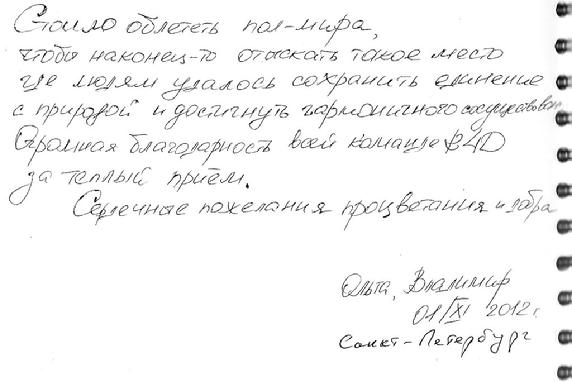 Стоило облететь пол-мира,
чтобы наконец-то отыскать такое место
где людям удалось сохранить единение
с природой и достигнуть гармоничного сосуществован
Огромная благодарность всей команде B4D
за теплый приём.
Сердечные пожелания процветания и добра
Ольга, Владимир
01/XI 2012г.
Санкт-Петербург